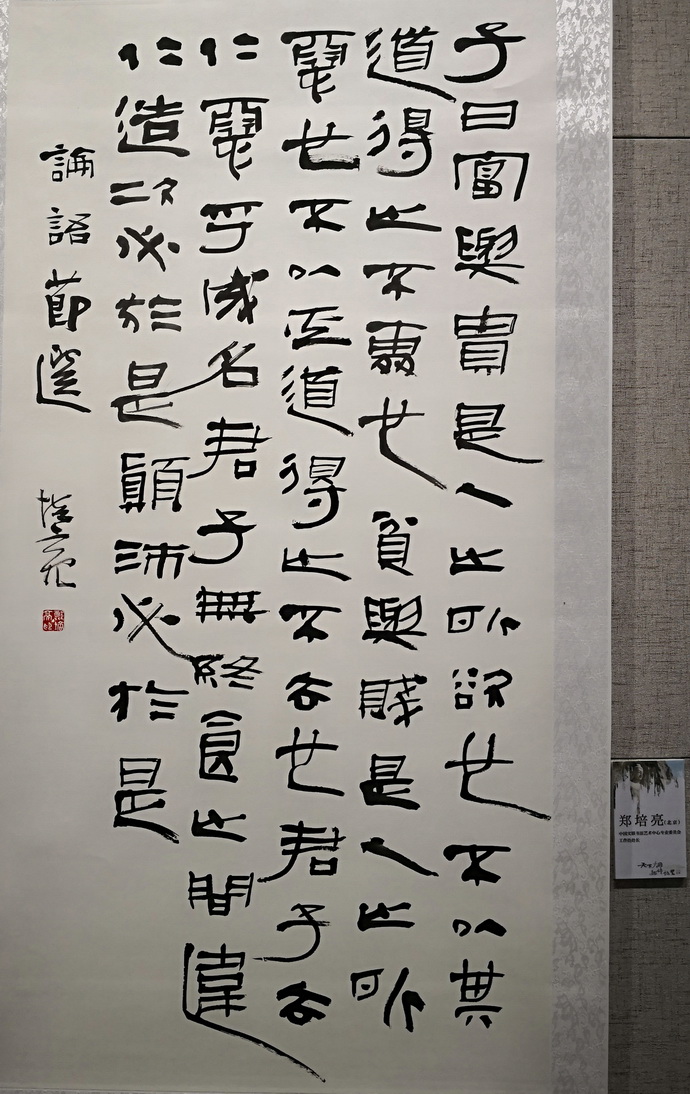 子曰富與貴是人之所欲也不以其
道得之不處也貧與賤是人之所
惡也不以其道得之不去也君子去
仁惡乎成名君子無終食之間違
仁造次必於是顛沛必於是
論語節選
培亮
郑培亮(北京)